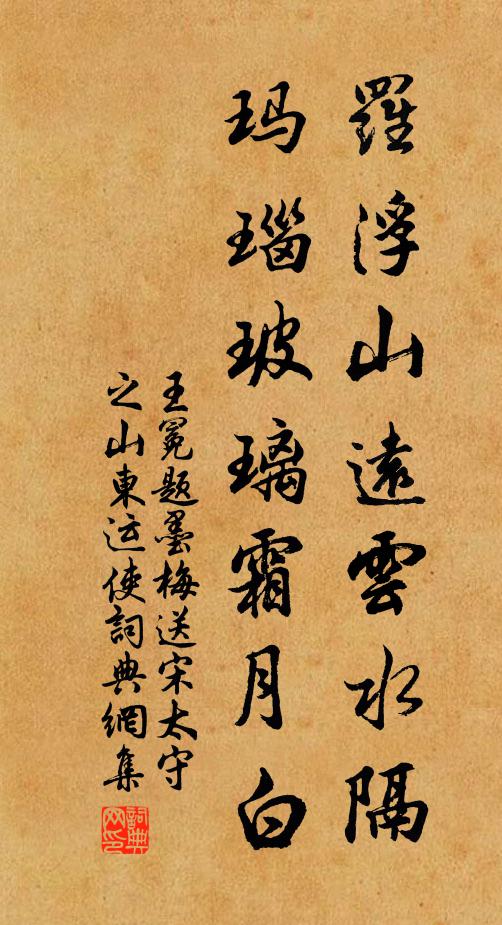 羅浮山遠雲水隔
玛瑙玻璃霜月白
王冕题墨梅送宋太守
之山東运使詞典網集
詞典
网印